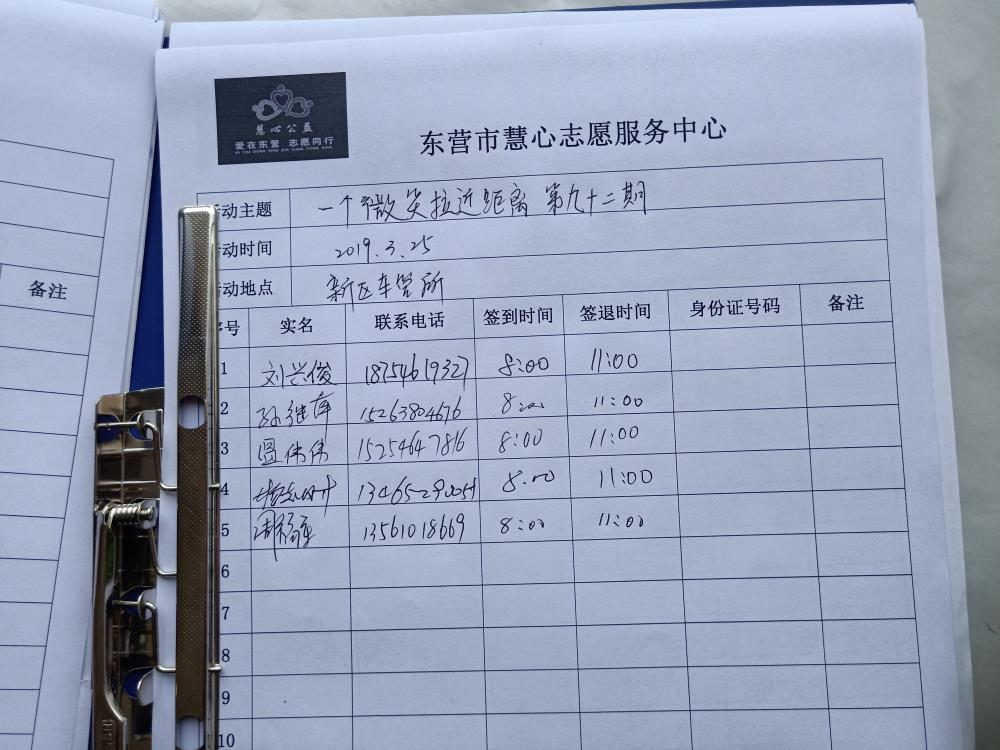 慧心公益
爱在东营 志愿同行
东营市慧心志愿服务中心
活动主题 一个微笑拉近距离 第九十二期
活动时间 2019.3.25
活动地点 新区车管所
备注
序号 实名 联系电话 签到时间 签退时间 身份证号码 备注
1 刘兴俊 18754619327 8:00 11:00
2 孙继萍 15263804676 8:00 11:00
3 伟伟 15254647816 8:00 11:00
4 8:00 11:00
5 周福 13561018669 8:00 11:00
6
7
8
9
10